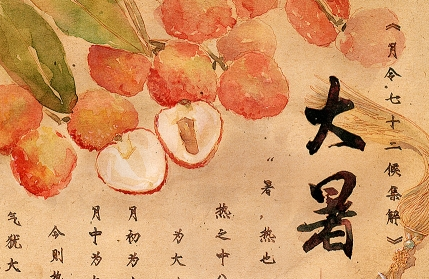 《月令七十二候集解》
大暑
“暑，热也
热之中
为大
月初为
月中为
今则热
气犹大